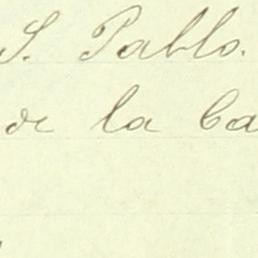 S. Pablo.
de la ca